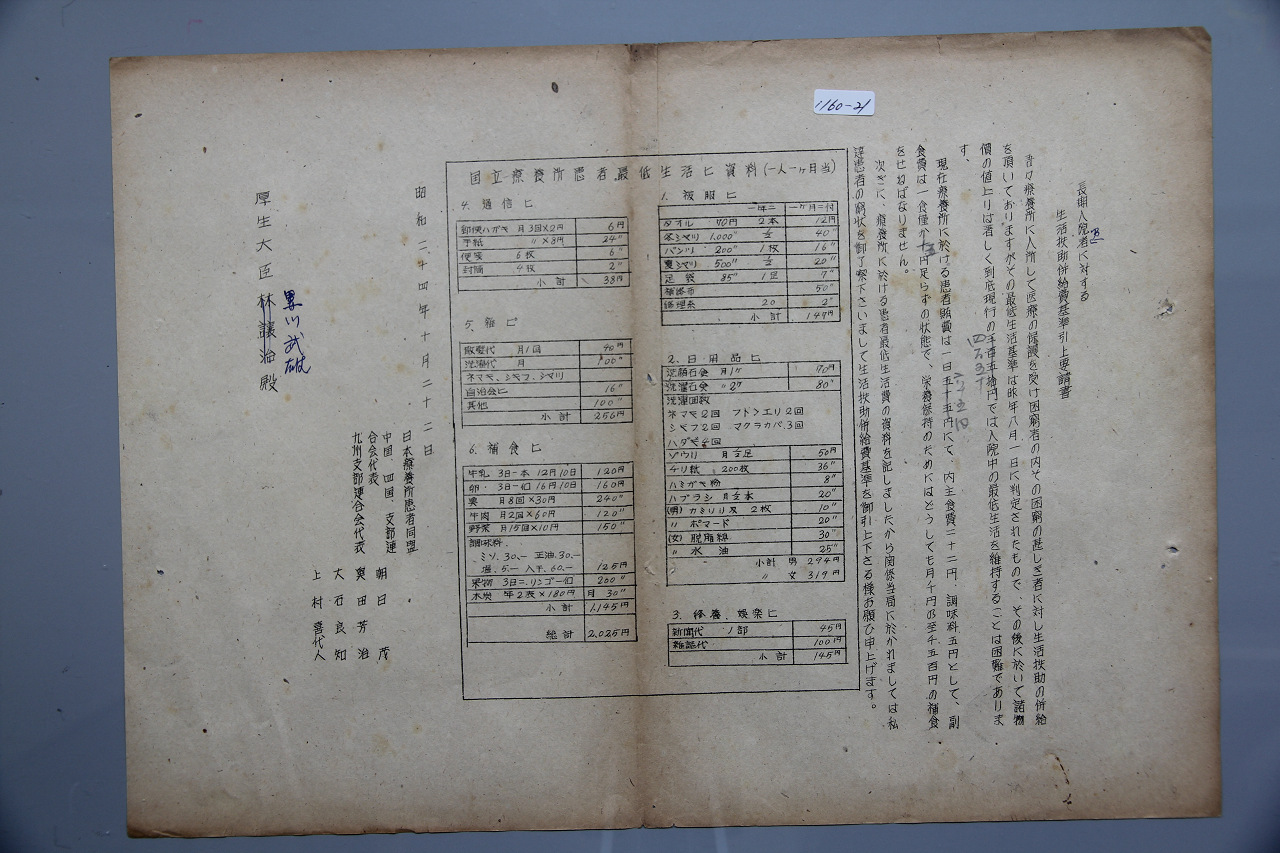 1160-21
長期入院患者に対する
生活扶助併給費基準引上要請書
吾々療養所に入所して医療の保護を受け困窮者の内その困窮の甚しき者に対し生活扶助の併給
を頂いておりますがその最低生活基準は昨年八月一日に判定されたもので、その後に於いて諸物
價の値上りは著しく到底現行の では入院中の最低生活を維持することは困難でありま
す。
現在療養所に於ける患者賄費は一日五十五円にて、内主食費二十二円、調味料五円として、副
食費は一食僅か十円足らずの状態で、栄養保持のためにはどうしても月千円乃至千五百円の補食
をせねばなりません。
次ぎに、療養所に於ける患者最低生活費の資料を記しましたから関係当局に於かれましては私
達患者の窮状を御了察下さいまして生活扶助併給費基準を御引上下さる様お願ひ申上げます。
国立療養所患者最低生活ヒ資料(一人一ヶ月当)
1. 被服ヒ
一年ニ 一ヶ月ニ付
タオル 70円 2本 12円
冬シャツ 1,000〃 ½ 40〃
パンツ 200〃 1枚 16〃
夏シャツ 500〃 ½ 20〃
足袋 85〃 1足 7〃
補修布 50〃
修理糸 20 2〃
小計 147円
2. 日用品ヒ
洗顔石ケン 月1ヶ 70円
洗濯石ケン 〃2ヶ 80〃
洗濯回数
ネマキ2回 フトンエリ2回
シキフ2回 マクラカバ3回
ハダギ4回
ゾウリ 月½足 50円
チリ紙 200枚 36〃
ハミガキ粉 8〃
ハブラシ 月½本 20〃
(男) カミソリ刃 2枚 10〃
〃 ポマード 20〃
(女) 脱脂綿 30〃
〃 水油 25〃
小計 男 294円
〃 女 319円
3. 修養、娯楽ヒ
新聞代 1部 45円
雑誌代 100円
小計 145円
4. 通信ヒ
郵便ハガキ 月3回×2円 6円
手紙 〃×8円 24〃
便箋 6枚 6〃
封筒 4枚 2〃
小計 38円
5. 雑ヒ
散髪代 月1回 40円
洗濯代 月 100〃
ネマキ、シキフ、シャツ
自治会ヒ 16〃
其他 100〃
小計 256円
6. 補食ヒ
牛乳 3日一本 12円10日 120円
卵 3日一ヶ 16円10日 160円
魚 月8回×30円 240〃
牛肉 月2回×60円 120〃
野菜 月15回×10円 150〃
調味料
ミソ.30.- 正油.30.-
塩.5.- 入干.60.- 125円
果物 3日ニリンゴ一ヶ 200〃
木炭 年2表×180円 月 30〃
小計 1,145円
総計 2,025円
昭和二十四年十月二十二日
日本療養所患者同盟
朝日 茂
中国、四国、支部連
合会代表
奥田芳治
大石良知
九州支部連合会代表
上村喜代人
厚生大臣 林譲治殿
黒川武雄